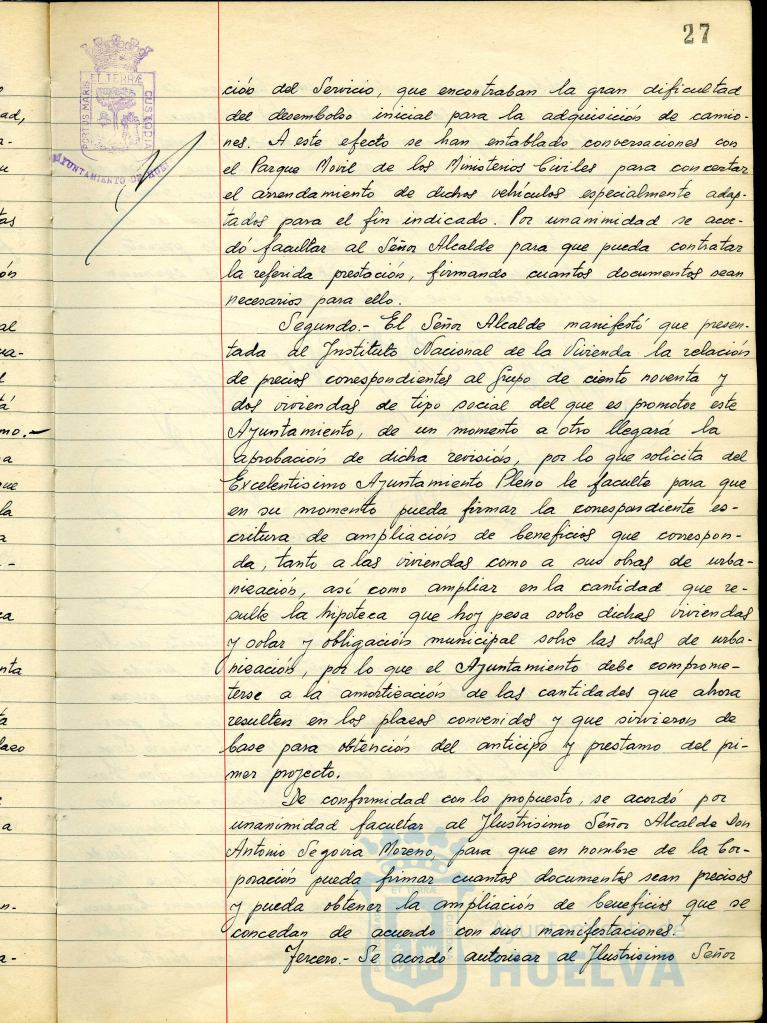 27
ET TERRÆ
PORTUS MARIS
CUSTODIA
AYUNTAMIENTO DE HUEL
ción del Servicio, que encontraban la gran dificultad
del desembolso inicial para la adquisición de camio-
nes. A este efecto se han entablado conversaciones con
el Parque Movil de los Ministerios Civiles para concertar
el arrendamiento de dichos vehículos especialmente adap-
tados para el fin indicado. Por unanimidad se acor-
dó facultar al Señor Alcalde para que pueda contratar
la referida prestación, firmando cuantos documentos sean
necesarios para ello.
Segundo.- El Señor Alcalde manifestó que presen-
tada al Instituto Nacional de la Vivienda la relación
de precios correspondientes al Grupo de ciento noventa y
dos viviendas de tipo social del que es promotor este
Ayuntamiento, de un momento a otro llegará la
aprobación de dicha revisión, por lo que solicita del
Excelentisimo Ayuntamiento Pleno le faculte para que
en su momento pueda firmar la correspondiente es-
critura de ampliación de beneficios que correspon-
da, tanto a las viviendas como a sus obras de urba-
nización, así como ampliar en la cantidad que re-
sulte la hipoteca que hoy pesa sobre dichas viviendas
y solar y obligación municipal sobre las obras de urba-
nización, por lo que el Ayuntamiento debe comprome-
terse a la amortización de las cantidades que ahora
resulten en los plazos convenidos y que sirvieron de
base para obtención del anticipo y prestamo del pri-
mer projecto.
De conformidad con lo propuesto, se acordó por
unanimidad facultar al Ilustrisimo Señor Alcalde Don
Antonio Segovia Moreno, para que en nombre de la Cor-
poración pueda firmar cuantos documentos sean precisos
y pueda obtener la ampliación de beneficios que se
concedan de acuerdo con sus manifestaciones.
Tercero.- Se acordó autorisar al Ilustrisimo Señor
HUELVA